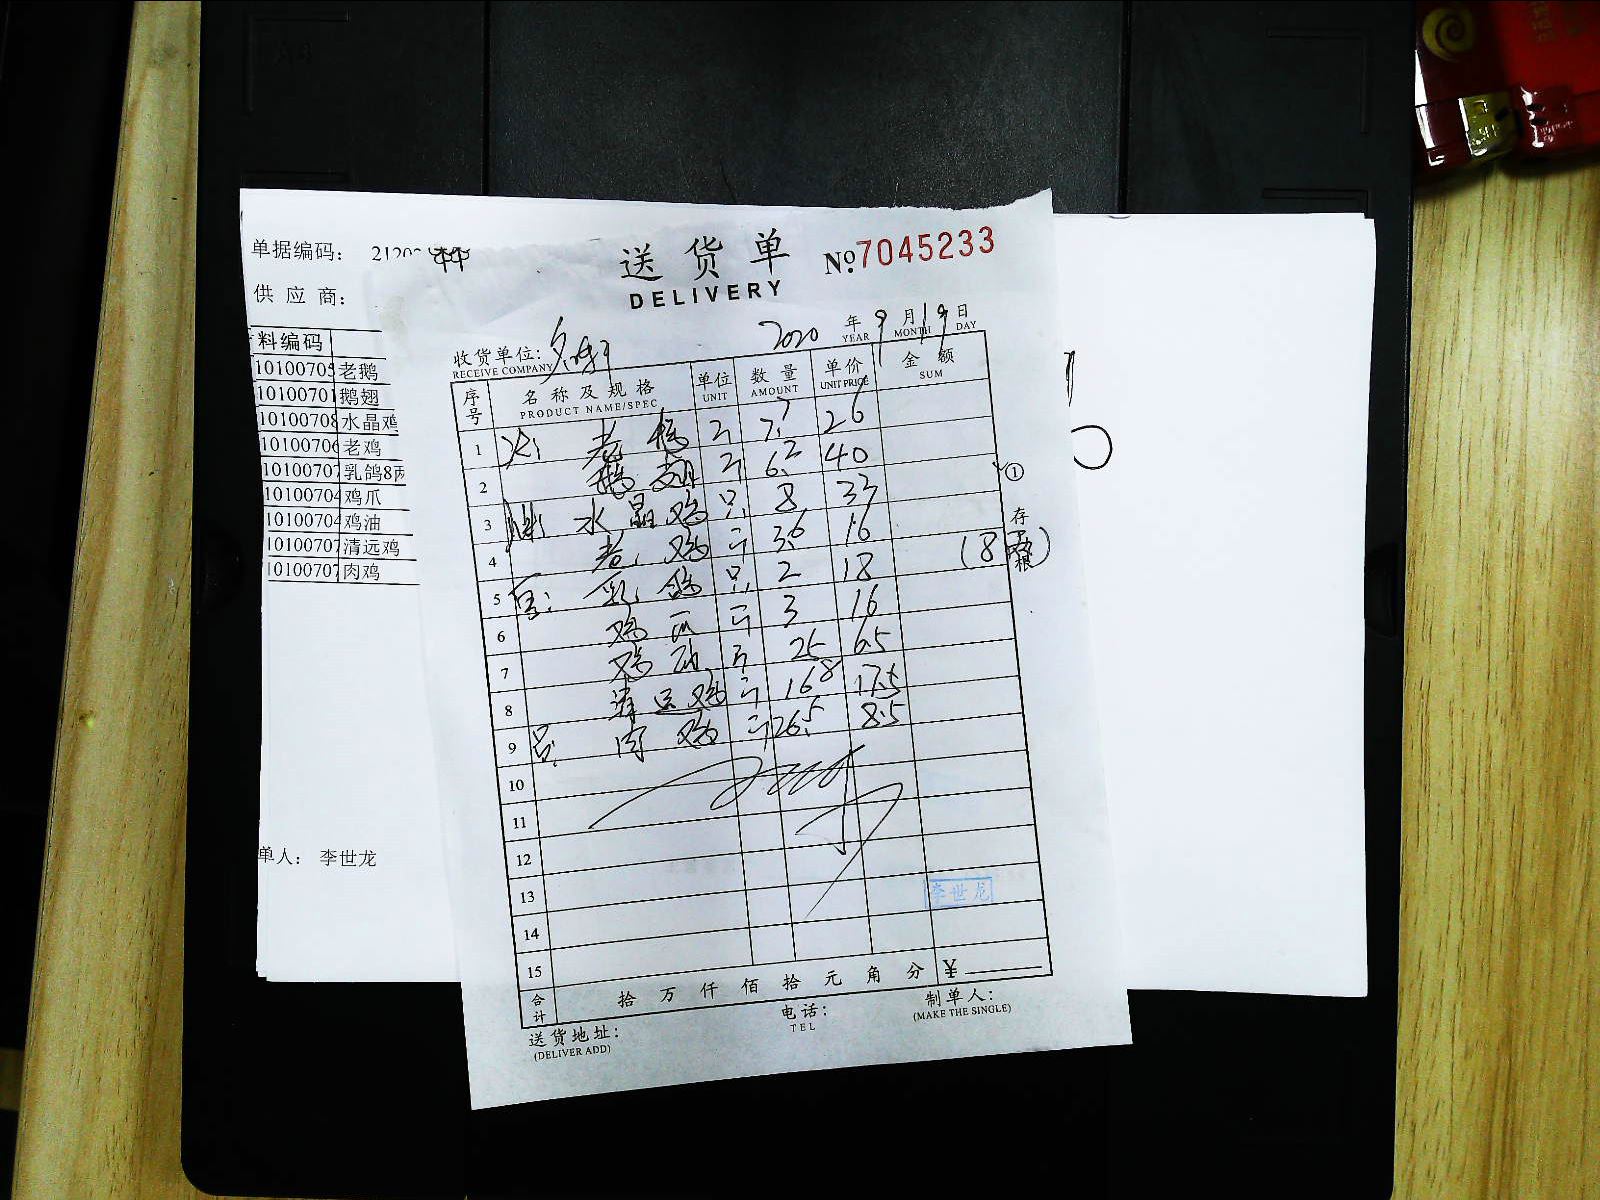 单据编码：
供 应 商：
料编码
老鹅
鹅翅
水晶鸡
老鸡
乳鸽8两
鸡爪
鸡油
清远鸡
肉鸡
单人： 李世龙
送 货 单
DELIVERY
№7045233
2020 年 9 月 19 日
YEAR MONTH DAY
收货单位：
RECEIVE COMPANY
序号 名 称 及 规 格 单位 数 量 单价 金 额
PRODUCT NAME/SPEC UNIT AMOUNT UNIT PRICE SUM
1 老 鹅 斤 7.7 26
2 鹅 翅 斤 6.2 40
3 水 晶 鸡 只 8 33
4 老 鸡 斤 3.6 16
5 乳 鸽 只 2 18 (8两)
6 鸡 爪 斤 3 16
7 鸡 油 斤 25 6.5
8 清 远 鸡 斤 16.8 17.5
9 肉 鸡 斤 26.5 8.5
10
11
12
13
李世龙
14
15
合计 拾 万 仟 佰 拾 元 角 分 ¥
送货地址： 电话： 制单人：
(DELIVER ADD) TEL (MAKE THE SINGLE)
① 存根